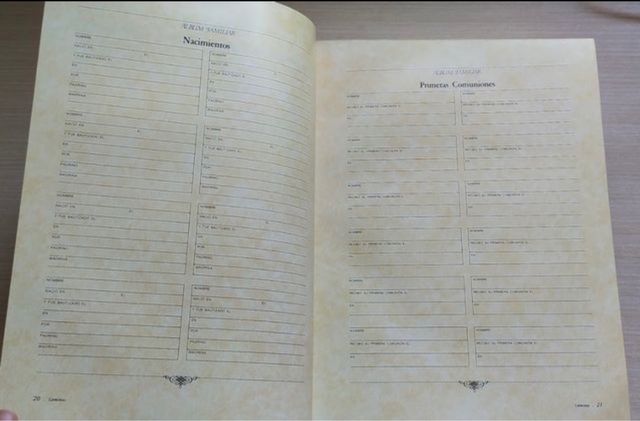 ALBUM FAMILIAR
Nacimientos
NOMBRE
NACIÓ EN EL
Y FUE BAUTIZADO EL
EN
POR
PADRINO
MADRINA
NOMBRE
NACIÓ EN EL
Y FUE BAUTIZADO EL
EN
POR
PADRINO
MADRINA
NOMBRE
NACIÓ EN EL
Y FUE BAUTIZADO EL
EN
POR
PADRINO
MADRINA
NOMBRE
NACIÓ EN EL
Y FUE BAUTIZADO EL
EN
POR
PADRINO
MADRINA
NOMBRE
NACIÓ EN EL
Y FUE BAUTIZADO EL
EN
POR
PADRINO
MADRINA
NOMBRE
NACIÓ EN EL
Y FUE BAUTIZADO EL
EN
POR
PADRINO
MADRINA
NOMBRE
NACIÓ EN EL
Y FUE BAUTIZADO EL
EN
POR
PADRINO
MADRINA
NOMBRE
NACIÓ EN EL
Y FUE BAUTIZADO EL
EN
POR
PADRINO
MADRINA
20
ALBUM FAMILIAR
Primeras Comuniones
NOMBRE
RECIBIÓ SU PRIMERA COMUNIÓN EL
EN
NOMBRE
RECIBIÓ SU PRIMERA COMUNIÓN EL
EN
NOMBRE
RECIBIÓ SU PRIMERA COMUNIÓN EL
EN
NOMBRE
RECIBIÓ SU PRIMERA COMUNIÓN EL
EN
NOMBRE
RECIBIÓ SU PRIMERA COMUNIÓN EL
EN
NOMBRE
RECIBIÓ SU PRIMERA COMUNIÓN EL
EN
NOMBRE
RECIBIÓ SU PRIMERA COMUNIÓN EL
EN
NOMBRE
RECIBIÓ SU PRIMERA COMUNIÓN EL
EN
NOMBRE
RECIBIÓ SU PRIMERA COMUNIÓN EL
EN
NOMBRE
RECIBIÓ SU PRIMERA COMUNIÓN EL
EN
NOMBRE
RECIBIÓ SU PRIMERA COMUNIÓN EL
EN
NOMBRE
RECIBIÓ SU PRIMERA COMUNIÓN EL
EN
21